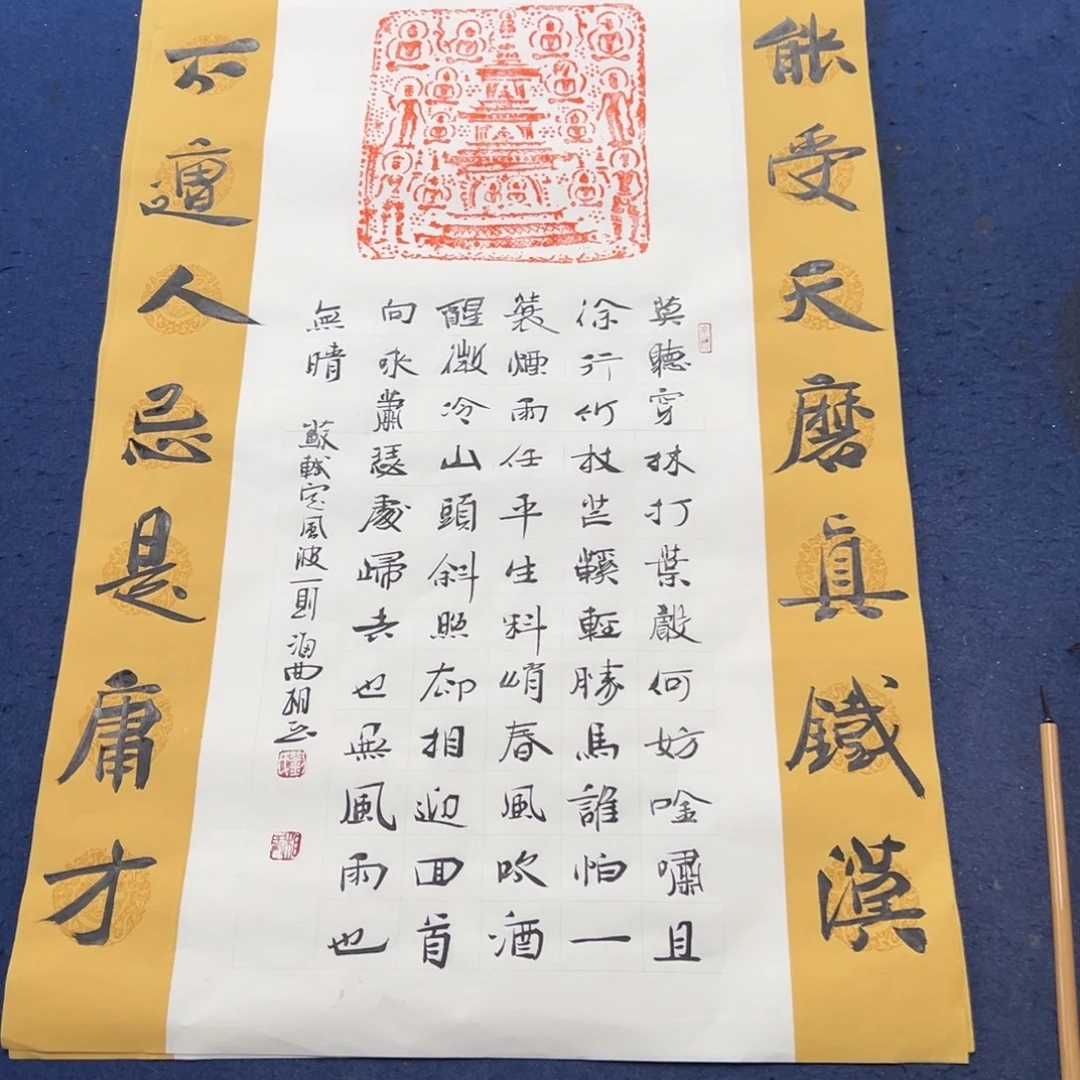 能受天磨真鐵漢
莫聽穿林打葉聲何妨唫嘯且
徐行竹杖芒鞵輕勝馬誰怕一
蓑煙雨任平生料峭春風吹酒
醒微冷山頭斜照却相迎回首
向來蕭瑟處歸去也無風雨也
無晴
蘇軾定風波一則 海曲相
不遭人忌是庸才